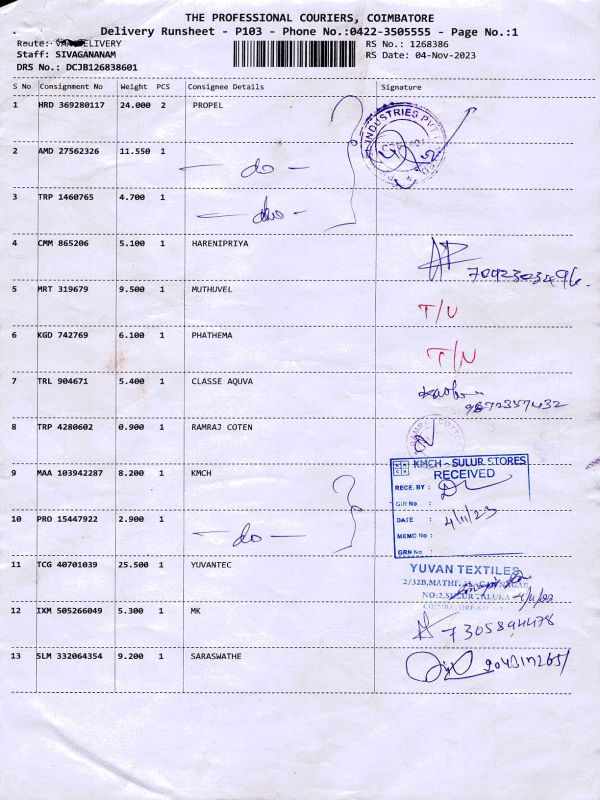 THE PROFESSIONAL COURIERS, COIMBATORE
Delivery Runsheet - P103 - Phone No.:0422-3505555 - Page No.:1
Route: DELIVERY
RS No.: 1268386
Staff: SIVAGANANAM
RS Date: 04-Nov-2023
DRS No.: DCJB126838601
S No Consignment No Weight PCS Consignee Details Signature
1 HRD 369280117 24.000 2 PROPEL
INDUSTRIES PVT
2 AMD 27562326 11.550 1 - do -
3 TRP 1460765 4.700 1 - do -
4 CMM 865206 5.100 1 HARENIPRIYA
5 MRT 319679 9.500 1 MUTHUVEL T/U
6 KGD 742769 6.100 1 PHATHEMA T/N
7 TRL 904671 5.400 1 CLASSE AQUVA
8 TRP 4280602 0.900 1 RAMRAJ COTEN
KMCH - SULUR STORES
9 MAA 103942287 8.200 1 KMCH RECEIVED
RECE. BY :
GIR No :
10 PRO 15447922 2.900 1 - do - DATE : 4/11/23
MEMO No :
GRN No :
11 TCG 40701039 25.500 1 YUVANTEC YUVAN TEXTILES
NO:2, SULUR TALUKA
12 IXM 505266049 5.300 1 MK 7305894478
13 SLM 332064354 9.200 1 SARASWATHE